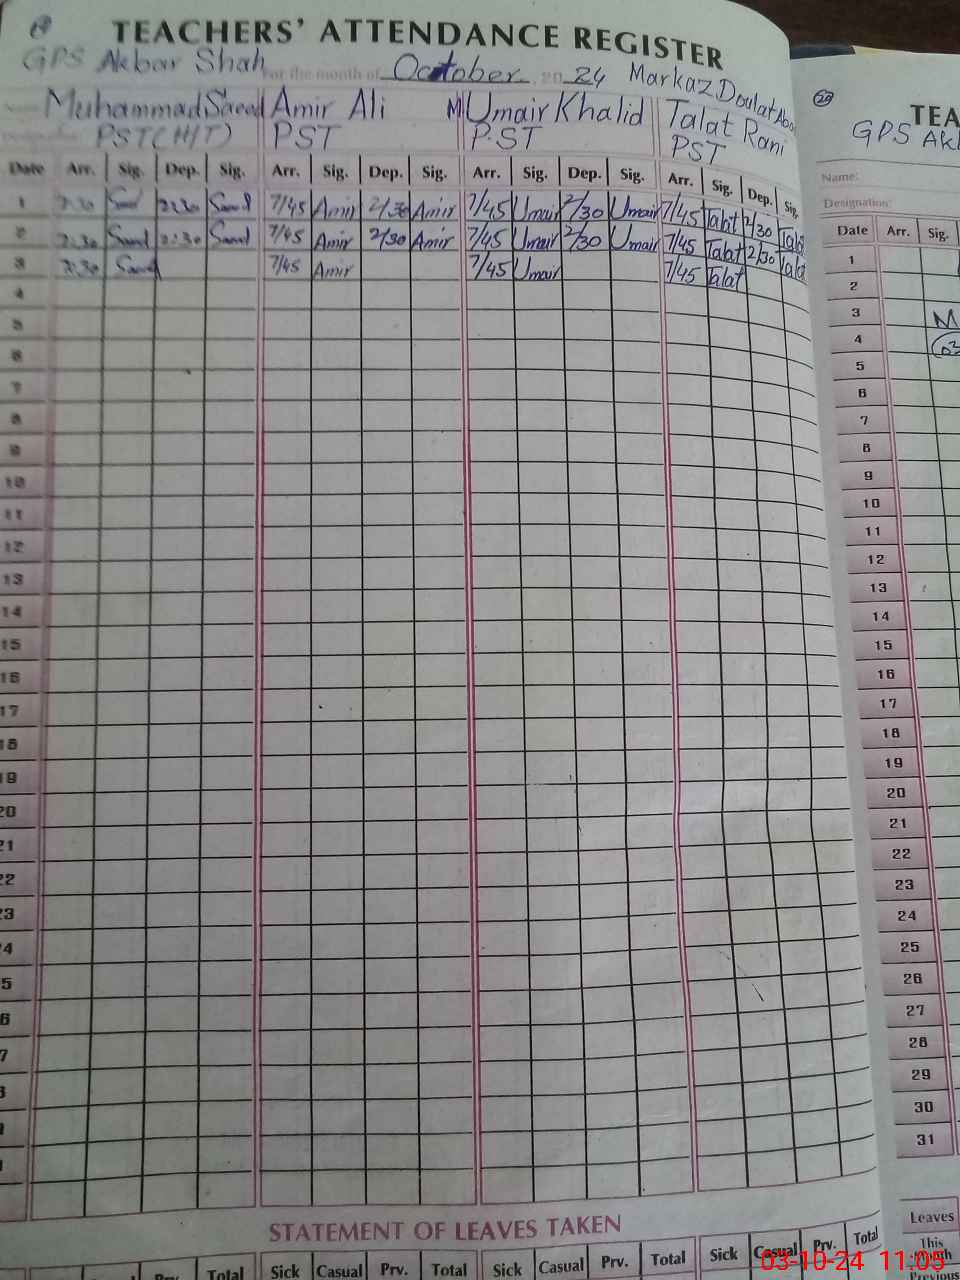 TEACHERS' ATTENDANCE REGISTER
GPS Akbar Shah For the month of October 2024 Markaz Doulat
Muhammad Saeed Amir Ali M Umair Khalid Talat Rani
PST (H/T) PST P.ST PST
Date Arr. Sig. Dep. Sig. Arr. Sig. Dep. Sig. Arr. Sig. Dep. Sig. Arr. Sig. Dep. Sig.
1 7:30 Saeed 2:30 Saeed 7/45 Amir 2/30 Amir 7/45 Umair 2/30 Umair 7/45 Talat 2/30 Talat
2 7:30 Saeed 2:30 Saeed 7/45 Amir 2/30 Amir 7/45 Umair 2/30 Umair 7/45 Talat 2/30 Talat
3 7:30 Saeed 7/45 Amir 7/45 Umair 7/45 Talat
4
5
6
7
8
9
10
11
12
13
14
15
16
17
18
19
20
21
22
23
24
25
26
27
STATEMENT OF LEAVES TAKEN
Prv. Total Sick Casual Prv. Total Sick Casual Prv. Total Sick Casual Prv. Total
29
TEA
GPS Ak
Name:
Designation:
Date Arr. Sig.
1
2
3 M
4
5
6
7
8
9
10
11
12
13
14
15
16
17
18
19
20
21
22
23
24
25
26
27
28
29
30
31
Leaves
This
Month
Previous
03-10-24 11:05